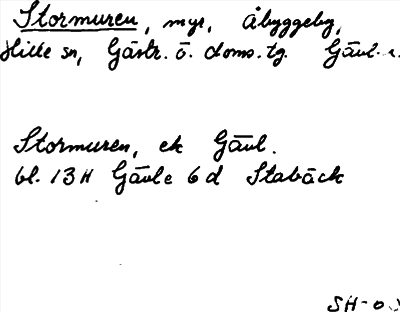 Stormuren, myr, Åbyggeby,
Hille sn, Gästr. ö. doms.tg. Gävl.
Stormuren, ek Gävl.
bl. 13H Gävle 6d Stabäck
SH-